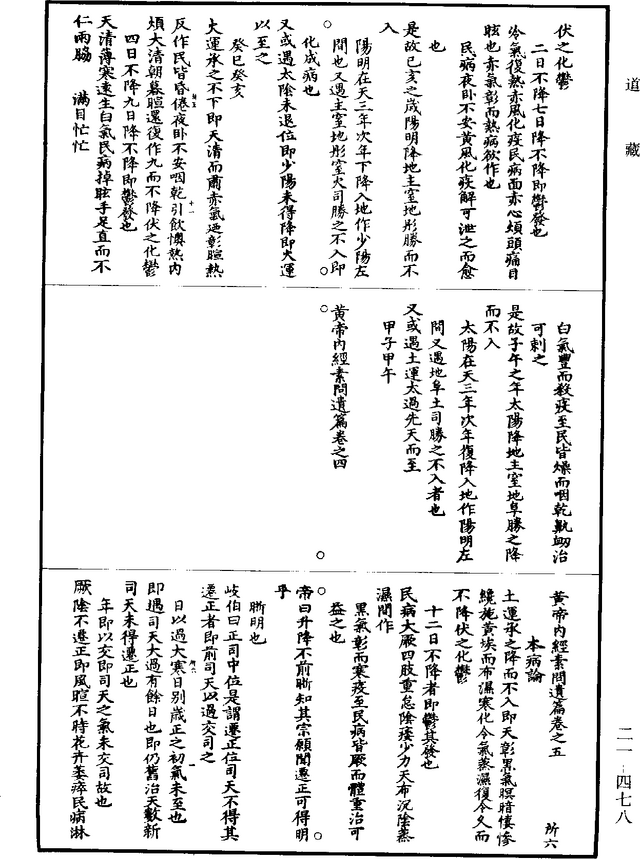 道藏
伏之化鬱
二日不降七日降不降即鬱發也
冷氣復熱赤風化疫民病面赤心煩頭痛目
眩也赤氣彰而熱病欲作也
民病夜卧不安黄風化疫解可泄之而愈
也
是故巳亥之歲陽明降地主室地彤勝而不
入
陽明在天三年次年下降入地作少陽左
間也又遇主室地彤室火司勝之不入即
化成病也
又或遇太陰未退位即少陽未得降即火運
以至之
癸巳癸亥
大運承之不下即天清而肅赤氣迺彰暄熱
反作民皆昏倦夜卧不安咽乾引飲懊熱内
煩大清朝暮暄還復作九而不降伏之化鬱
四日不降九日降不降即鬱發也
天清薄寒遠生白氣民病掉眩手足直而不
仁兩脇 滿目忙忙
白氣豐而殺疫至民皆燥而咽乾鼽衂治
可刺之
是故子午之年太陽降地主室地阜勝之降
而不入
太陽在天三年次年復降入地作陽明左
間又遇地阜土司勝之不入者也
又或遇土運太過先天而至
甲子甲午
黄帝内經素問遺篇卷之四
黄帝内經素問遺篇卷之五 所六
本病論
土運承之降而不入即天彰黑氣暝暗悽慘
纔施黄埃而布濕寒化令氣蒸濕復令久而
不降伏之化鬱
十二日不降者即鬱其發也
民病大厥四肢重怠陰痿少力天布沉陰蒸
濕間作
黑氣彰而寒疫至民病皆厥而體重治可
益之也
帝曰升降不前晣知其宗願聞遷正可得明
乎
晣明也
岐伯曰正司中位是謂遷正位司天不得其
遷正者即前司天以過交司之
日以過大寒日别歲正之初氣未至也
即遇司天大過有餘日也即仍舊治天數新
司天未得遷正也
年即以交即司天之氣未交司故也
厥陰不遷正即風暄不時花卉萎瘁民病淋
二一-四七八